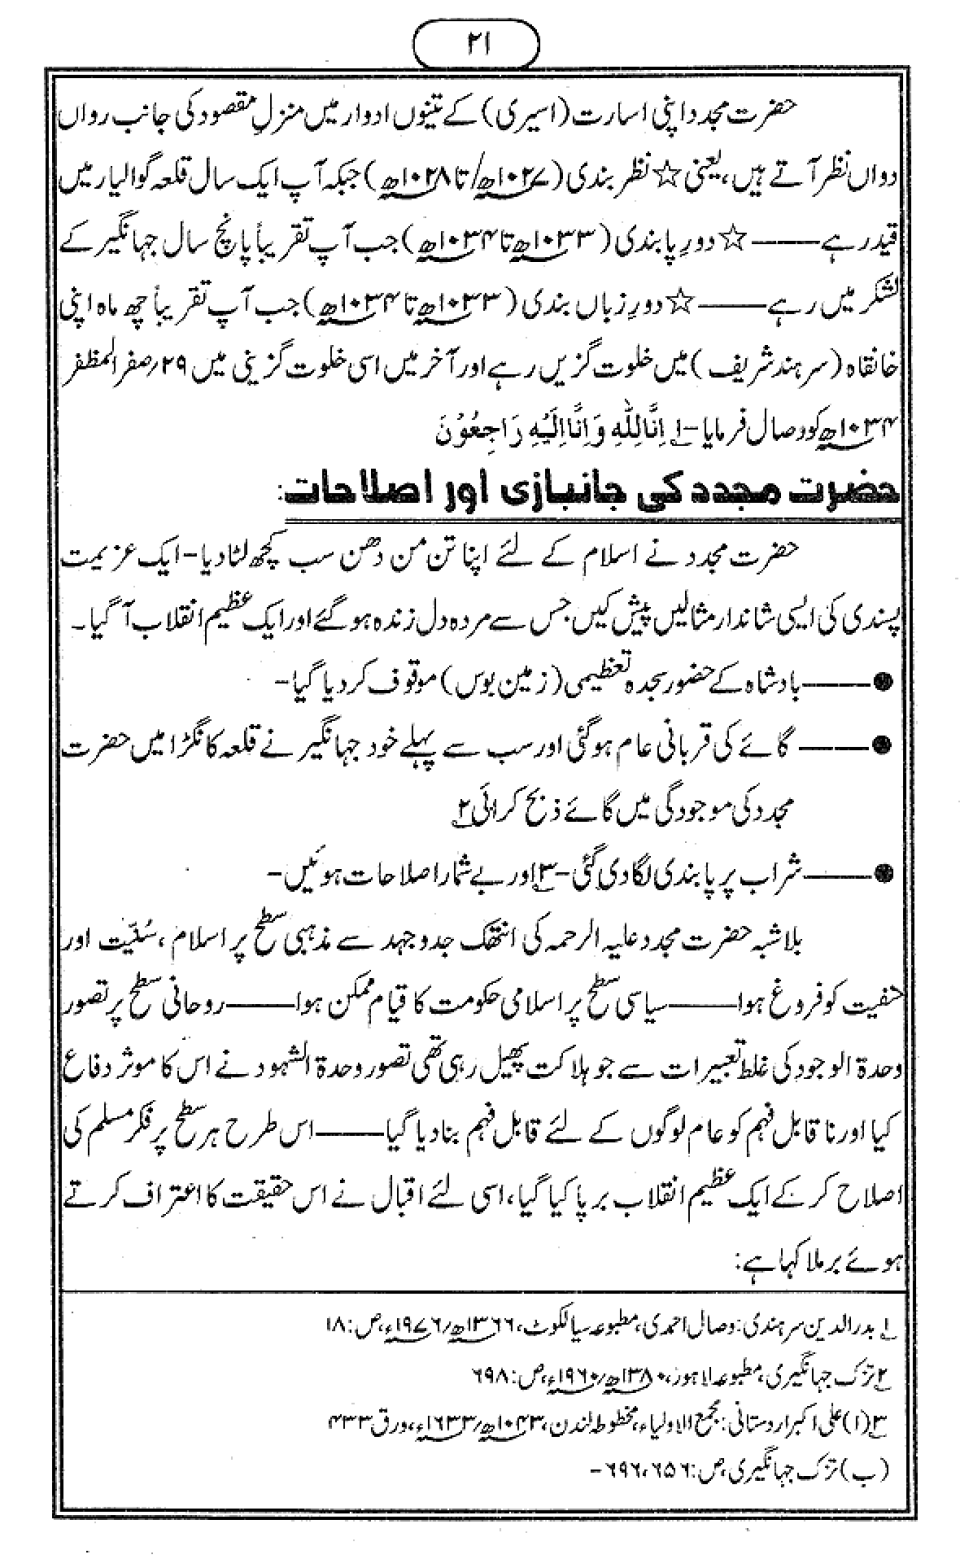 ۲۱
حضرت مجدد اپنی اسارت (اسیری) کے تینوں ادوار میں منزلِ مقصود کی جانب رواں
دواں نظر آتے ہیں، یعنی ☆ نظر بندی (۱۰۲۷ھ/ تا ۱۰۲۸ھ) جبکہ آپ ایک سال قلعہ گوالیار میں
قید رہے —— ☆ دورِ پابندی (۱۰۳۳ھ تا ۱۰۳۴ھ) جب آپ تقریباً پانچ سال جہانگیر کے
لشکر میں رہے —— ☆ دورِ زباں بندی (۱۰۳۳ھ تا ۱۰۳۴ھ) جب آپ تقریباً چھ ماہ اپنی
خانقاہ (سرہند شریف) میں خلوت گزیں رہے اور آخر میں اسی خلوت گزینی میں ۲۹/ صفر المظفر
۱۰۳۴ھ کو وصال فرمایا۔ ۱ اِنَّا لِلّٰہِ وَ اِنَّا اِلَیْہِ رَاجِعُوْنَ
حضرت مجدد کی جانبازی اور اصلاحات:
حضرت مجدد نے اسلام کے لئے اپنا تن من دھن سب کچھ لٹا دیا۔ ایک عزیمت
پسندی کی ایسی شاندار مثالیں پیش کیں جس سے مردہ دل زندہ ہو گئے اور ایک عظیم انقلاب آ گیا۔
● —— بادشاہ کے حضور سجدہ تعظیمی (زمین بوس) موقوف کر دیا گیا۔
● —— گائے کی قربانی عام ہو گئی اور سب سے پہلے خود جہانگیر نے قلعہ کانگڑا میں حضرت
مجدد کی موجودگی میں گائے ذبح کرائی ۲
● —— شراب پر پابندی لگا دی گئی۔ ۳ اور بے شمار اصلاحات ہوئیں۔
بلا شبہ حضرت مجدد علیہ الرحمہ کی انتھک جدوجہد سے مذہبی سطح پر اسلام، سُنّیت اور
حنفیت کو فروغ ہوا —— سیاسی سطح پر اسلامی حکومت کا قیام ممکن ہوا —— روحانی سطح پر تصور
وحدۃ الوجود کی غلط تعبیرات سے جو ہلاکت پھیل رہی تھی تصور وحدۃ الشہود نے اس کا موثر دفاع
کیا اور ناقابل فہم کو عام لوگوں کے لئے قابل فہم بنا دیا گیا —— اس طرح ہر سطح پر فکر مسلم کی
اصلاح کر کے ایک عظیم انقلاب برپا کیا گیا، اسی لئے اقبال نے اس حقیقت کا اعتراف کرتے
ہوئے برملا کہا ہے:
۱ بدر الدین سرہندی: وصال احمدی، مطبوعہ سیالکوٹ، ۱۳۶۶ھ/۱۹۷۶ء، ص: ۱۸
۲ تزک جہانگیری، مطبوعہ لاہور، ۱۳۸۰ھ/۱۹۶۰ء، ص: ۶۹۸
۳ (ا) علی اکبر اردستانی: مجمع الاولیاء، مخطوطہ لندن، ۱۰۴۳ھ/۱۶۳۳ء، ورق ۴۳۳
(ب) تزک جہانگیری، ص: ۶۵۶، ۶۹۶۔